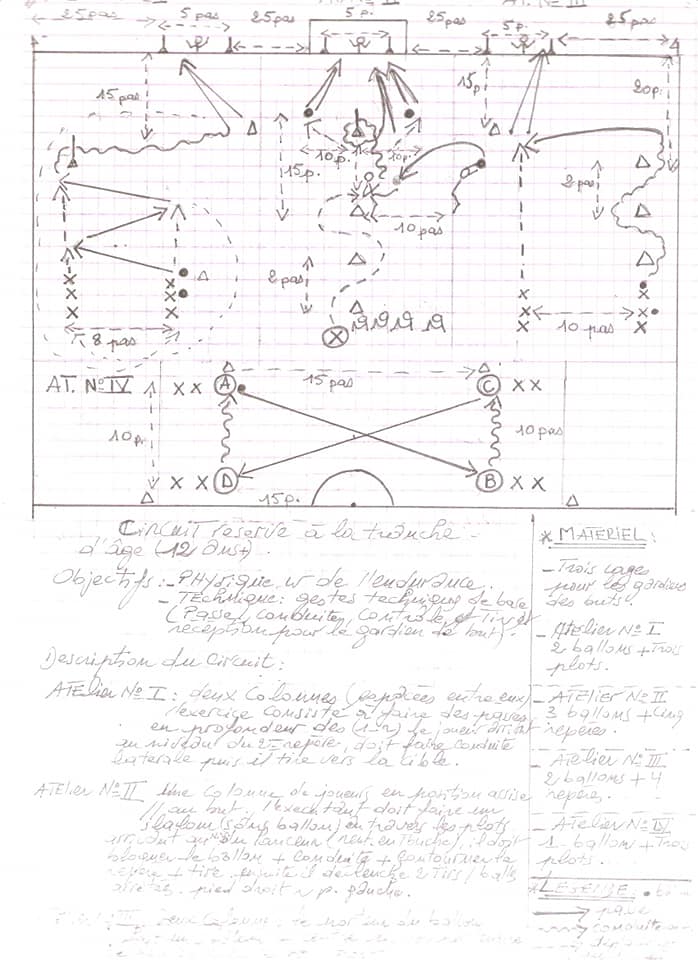 25 pas 5 pas 25 pas 5 p. 25 pas 5 p. 25 pas
15 pas 15 p 20 p.
10 p. 10 p.
15 p. 2 pas
10 pas
2 pas
8 pas 10 pas
AT. N° IV 15 pas
A C
10 p. 10 pas
D B
15 p.
Circuit reservé à la tranche
d'âge (12 ans)
Objectifs: - PHysique w de l'endurance.
- Technique: gestes techniques de base
(Passe, conduite, contrôle et Tirs et
réception pour le gardien de but).
Description du Circuit:
ATelier N° I: deux Colonnes (espacées entre eux)
l'exercice consiste à faire des passes
en profondeur des (1-2) le joueur arrivant
au niveau du 2è repère, doit faire conduite
latérale puis il tire vers la cible.
ATelier N° II Une Colonne de joueurs en position assise
// au but. l'executant doit faire un
slalom (sans ballon) en travers les plots
arrivant au lanceur (rent. en Touche), il doit
bloquer le ballon + conduite + contourner le
repère + tire ensuite il déclenche 2 Tirs / balls
arrêtés. pied droit p. gauche.
deux Colonnes: le porteur du ballon
* MATERIEL:
- Trois cages
pour les gardiens
des buts.
- ATelier N° I
2 ballons + Trois
plots.
- ATELIER N° II
3 ballons + Cinq
repères.
- ATelier N° III
2 ballons + 4
repères.
- ATelier N° IV
1 ballons + Trois
plots.
* LEGENDE:
passe
conduite